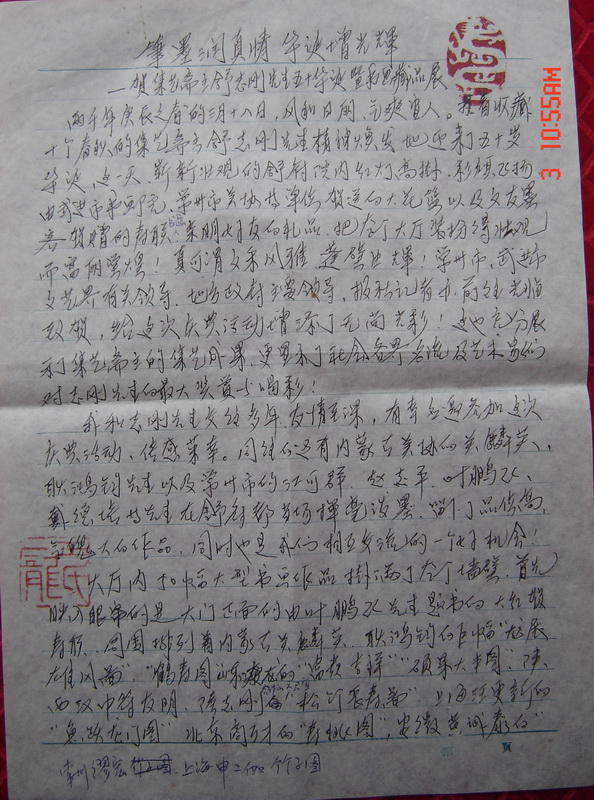 笔墨润真情 华诞增光辉
—贺集艺斋主舒志刚先生五十华诞暨书画藏品展
两千年庚辰之春的三月十八日,风和日丽,气爽宜人。拥有收藏
十个春秋的集艺斋主舒志刚先生精神焕发地迎来了五十岁
华诞,这一天,崭新壮观的舒府院内红灯高掛,彩旗飞扬
由武进市书画院、常州市美协等单位敬送的大花篮以及文友墨
客贺赠的寿联、亲朋好友的礼品,把个大厅装扮得壮观
而富丽堂煌!真可谓文采风雅,蓬壁生辉!常州市、武进市
文艺界有关领导,地方政府主要领导,报社记者中前往光临
致贺,给这次庆典活动增添了无尚光彩!这也充分展
示了集艺斋主的集艺成果,更显示了社会各界名流及艺术家们
对志刚先生的最大奖赏与喝彩!
我和志刚先生交往多年,友情至深,有幸应邀参加这次
庆典活动,倍感荣幸。同往的还有内蒙古美协的关麟英、
耿鸿钧先生以及常州市的江可群、赵志平、叶鹏飞、
戴德培等先生在舒府都当场挥毫泼墨,留下了品位高,
气魄大的作品,同时也是我们相互交流的一个好机会!
大厅内,加幅大型书画作品掛满了个个墙壁,首先
映入眼帘的是大门正面的由叶鹏飞先生题书的大红贺
寿联,周围排列着内蒙古关麟英、耿鸿钧的巨幅"大展
雄风图","鹤寿图"山东 的"富贵吉祥""硕果大丰图",陕
西汉中符友明、陈志刚 "松竹长寿图"上海江更新的
"鱼跃龙门图"北京 的"寿桃图",安徽黄诚泰的"
常州缪宏 、上海申二伽 竹石图
3 10:55AM